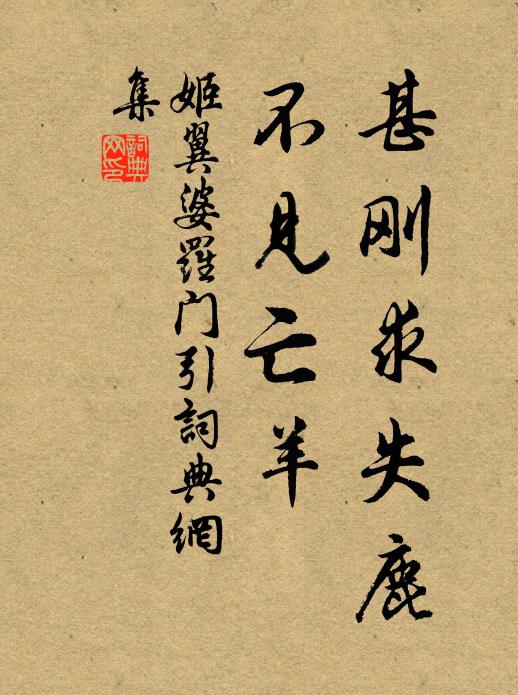 甚刚求失鹿
不见亡羊
姬翼婆羅门引詞典網
集
詞典网印